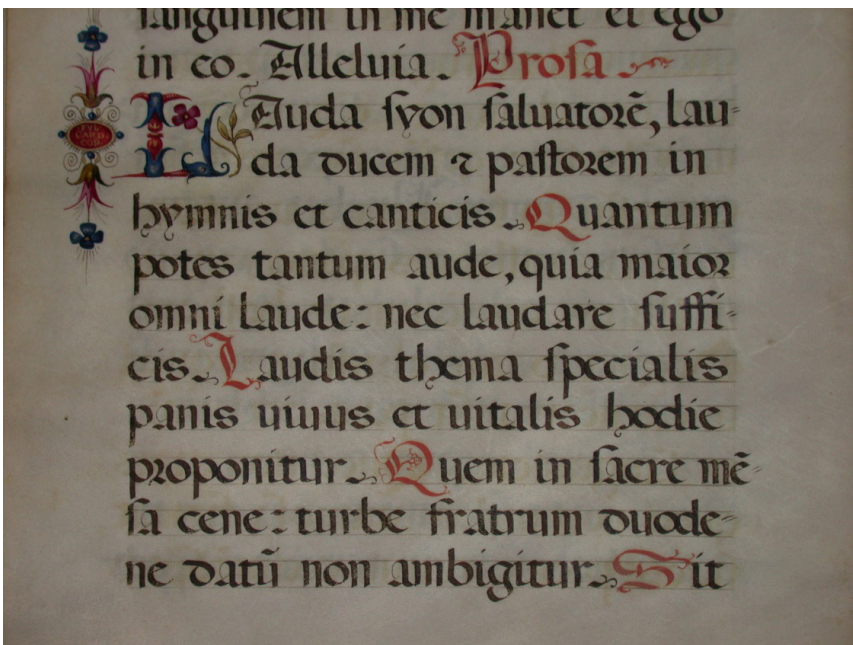 sanguinem in me manet et ego
in eo. Alleluia. Prosa
LAuda syon saluatorē, lau-
da ducem ⁊ pastorem in
hymnis et canticis. Quantum
potes tantum aude, quia maior
omni laude: nec laudare suffi-
cis. Laudis thema specialis
panis uiuus et uitalis hodie
proponitur. Quem in sacre mē-
sa cene: turbe fratrum duode-
ne datū non ambigitur. Sit